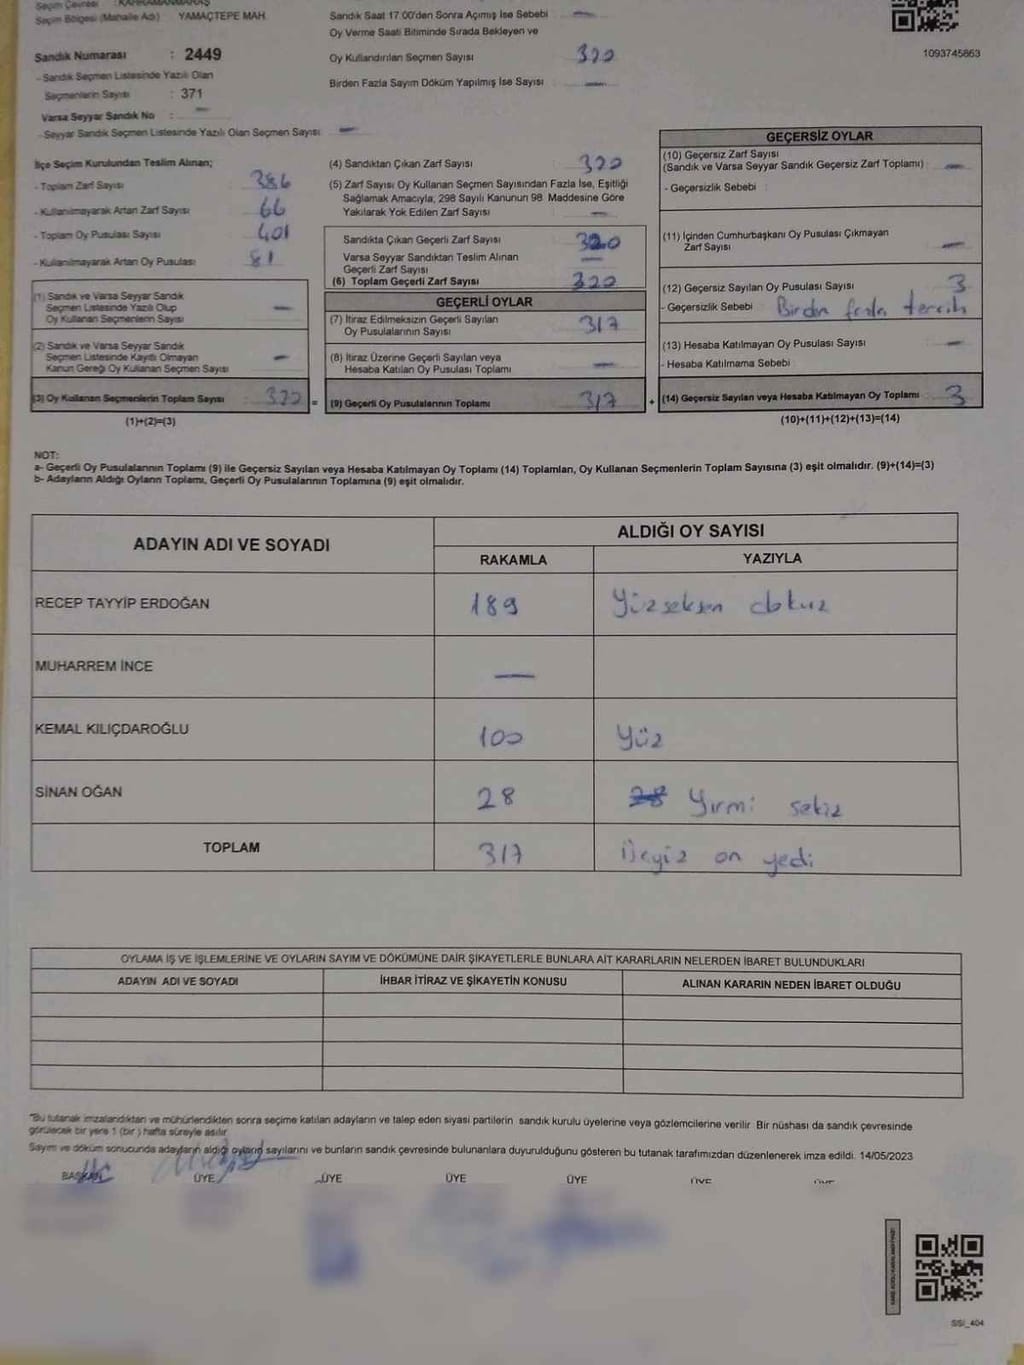 Seçim Çevresi : KAHRAMANMARAŞ
Seçim Bölgesi (Mahalle Adı) : YAMAÇTEPE MAH.
Sandık Numarası : 2449
- Sandık Seçmen Listesinde Yazılı Olan
Seçmenlerin Sayısı : 371
Varsa Seyyar Sandık No : —
- Seyyar Sandık Seçmen Listesinde Yazılı Olan Seçmen Sayısı : —
Sandık Saat 17:00'den Sonra Açımış İse Sebebi : —
Oy Verme Saati Bitiminde Sırada Bekleyen ve
Oy Kullandırılan Seçmen Sayısı : 320
Birden Fazla Sayım Döküm Yapılmış İse Sayısı : —
1093745863
İlçe Seçim Kurulundan Teslim Alınan;
- Toplam Zarf Sayısı : 386
- Kullanılmayarak Artan Zarf Sayısı : 66
- Toplam Oy Pusulası Sayısı : 401
- Kullanılmayarak Artan Oy Pusulası : 81
(1) Sandık ve Varsa Seyyar Sandık
Seçmen Listesinde Yazılı Olup
Oy Kullanan Seçmenlerin Sayısı : —
(2) Sandık ve Varsa Seyyar Sandık
Seçmen Listesinde Kayıtlı Olmayan
Kanun Gereği Oy Kullanan Seçmen Sayısı : —
(3) Oy Kullanan Seçmenlerin Toplam Sayısı : 320 =
(1)+(2)=(3)
(4) Sandıktan Çıkan Zarf Sayısı : 320
(5) Zarf Sayısı Oy Kullanan Seçmen Sayısından Fazla İse, Eşitliği
Sağlamak Amacıyla, 298 Sayılı Kanunun 98. Maddesine Göre
Yakılarak Yok Edilen Zarf Sayısı : —
Sandıkta Çıkan Geçerli Zarf Sayısı : 320
Varsa Seyyar Sandıktan Teslim Alınan
Geçerli Zarf Sayısı : —
(6) Toplam Geçerli Zarf Sayısı : 320
GEÇERLİ OYLAR
(7) İtiraz Edilmeksizin Geçerli Sayılan
Oy Pusulalarının Sayısı : 317
(8) İtiraz Üzerine Geçerli Sayılan veya
Hesaba Katılan Oy Pusulası Toplamı : —
(9) Geçerli Oy Pusulalarının Toplamı : 317 +
GEÇERSİZ OYLAR
(10) Geçersiz Zarf Sayısı
(Sandık ve Varsa Seyyar Sandık Geçersiz Zarf Toplamı) : —
- Geçersizlik Sebebi :
(11) İçinden Cumhurbaşkanı Oy Pusulası Çıkmayan
Zarf Sayısı : —
(12) Geçersiz Sayılan Oy Pusulası Sayısı : 3
- Geçersizlik Sebebi : Birden fazla tercih
(13) Hesaba Katılmayan Oy Pusulası Sayısı : —
- Hesaba Katılmama Sebebi :
(14) Geçersiz Sayılan veya Hesaba Katılmayan Oy Toplamı : 3
(10)+(11)+(12)+(13)=(14)
NOT:
a- Geçerli Oy Pusulalarının Toplamı (9) ile Geçersiz Sayılan veya Hesaba Katılmayan Oy Toplamı (14) Toplamları, Oy Kullanan Seçmenlerin Toplam Sayısına (3) eşit olmalıdır. (9)+(14)=(3)
b- Adayların Aldığı Oyların Toplamı, Geçerli Oy Pusulalarının Toplamına (9) eşit olmalıdır.
ADAYIN ADI VE SOYADI ALDIĞI OY SAYISI
RAKAMLA YAZIYLA
RECEP TAYYİP ERDOĞAN 189 Yüzseksen dokuz
MUHARREM İNCE —
KEMAL KILIÇDAROĞLU 100 Yüz
SİNAN OĞAN 28 28 Yirmi sekiz
TOPLAM 317 Üçyüz on yedi
OYLAMA İŞ VE İŞLEMLERİNE VE OYLARIN SAYIM VE DÖKÜMÜNE DAİR ŞİKAYETLERLE BUNLARA AİT KARARLARIN NELERDEN İBARET BULUNDUKLARI
ADAYIN ADI VE SOYADI İHBAR İTİRAZ VE ŞİKAYETİN KONUSU ALINAN KARARIN NEDEN İBARET OLDUĞU
"Bu tutanak imzalandıktan ve mühürlendikten sonra seçime katılan adayların ve talep eden siyasi partilerin sandık kurulu üyelerine veya gözlemcilerine verilir. Bir nüshası da sandık çevresinde
görülecek bir yere 1 (bir) hafta süreyle asılır.
Sayım ve döküm sonucunda adayların aldığı oyların sayılarını ve bunların sandık çevresinde bulunanlara duyurulduğunu gösteren bu tutanak tarafımızdan düzenlenerek imza edildi. 14/05/2023
BAŞKAN ÜYE ÜYE ÜYE ÜYE ÜYE ÜYE
SSI_404